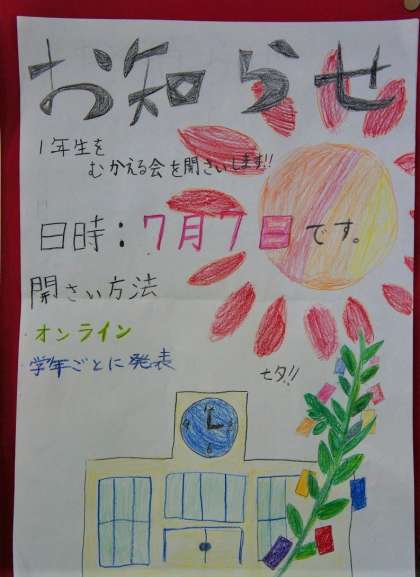 お知らせ
1年生を
むかえる会を開さいします!!
日時:7月7日です。
開さい方法
オンライン
学年ごとに発表
七夕!!